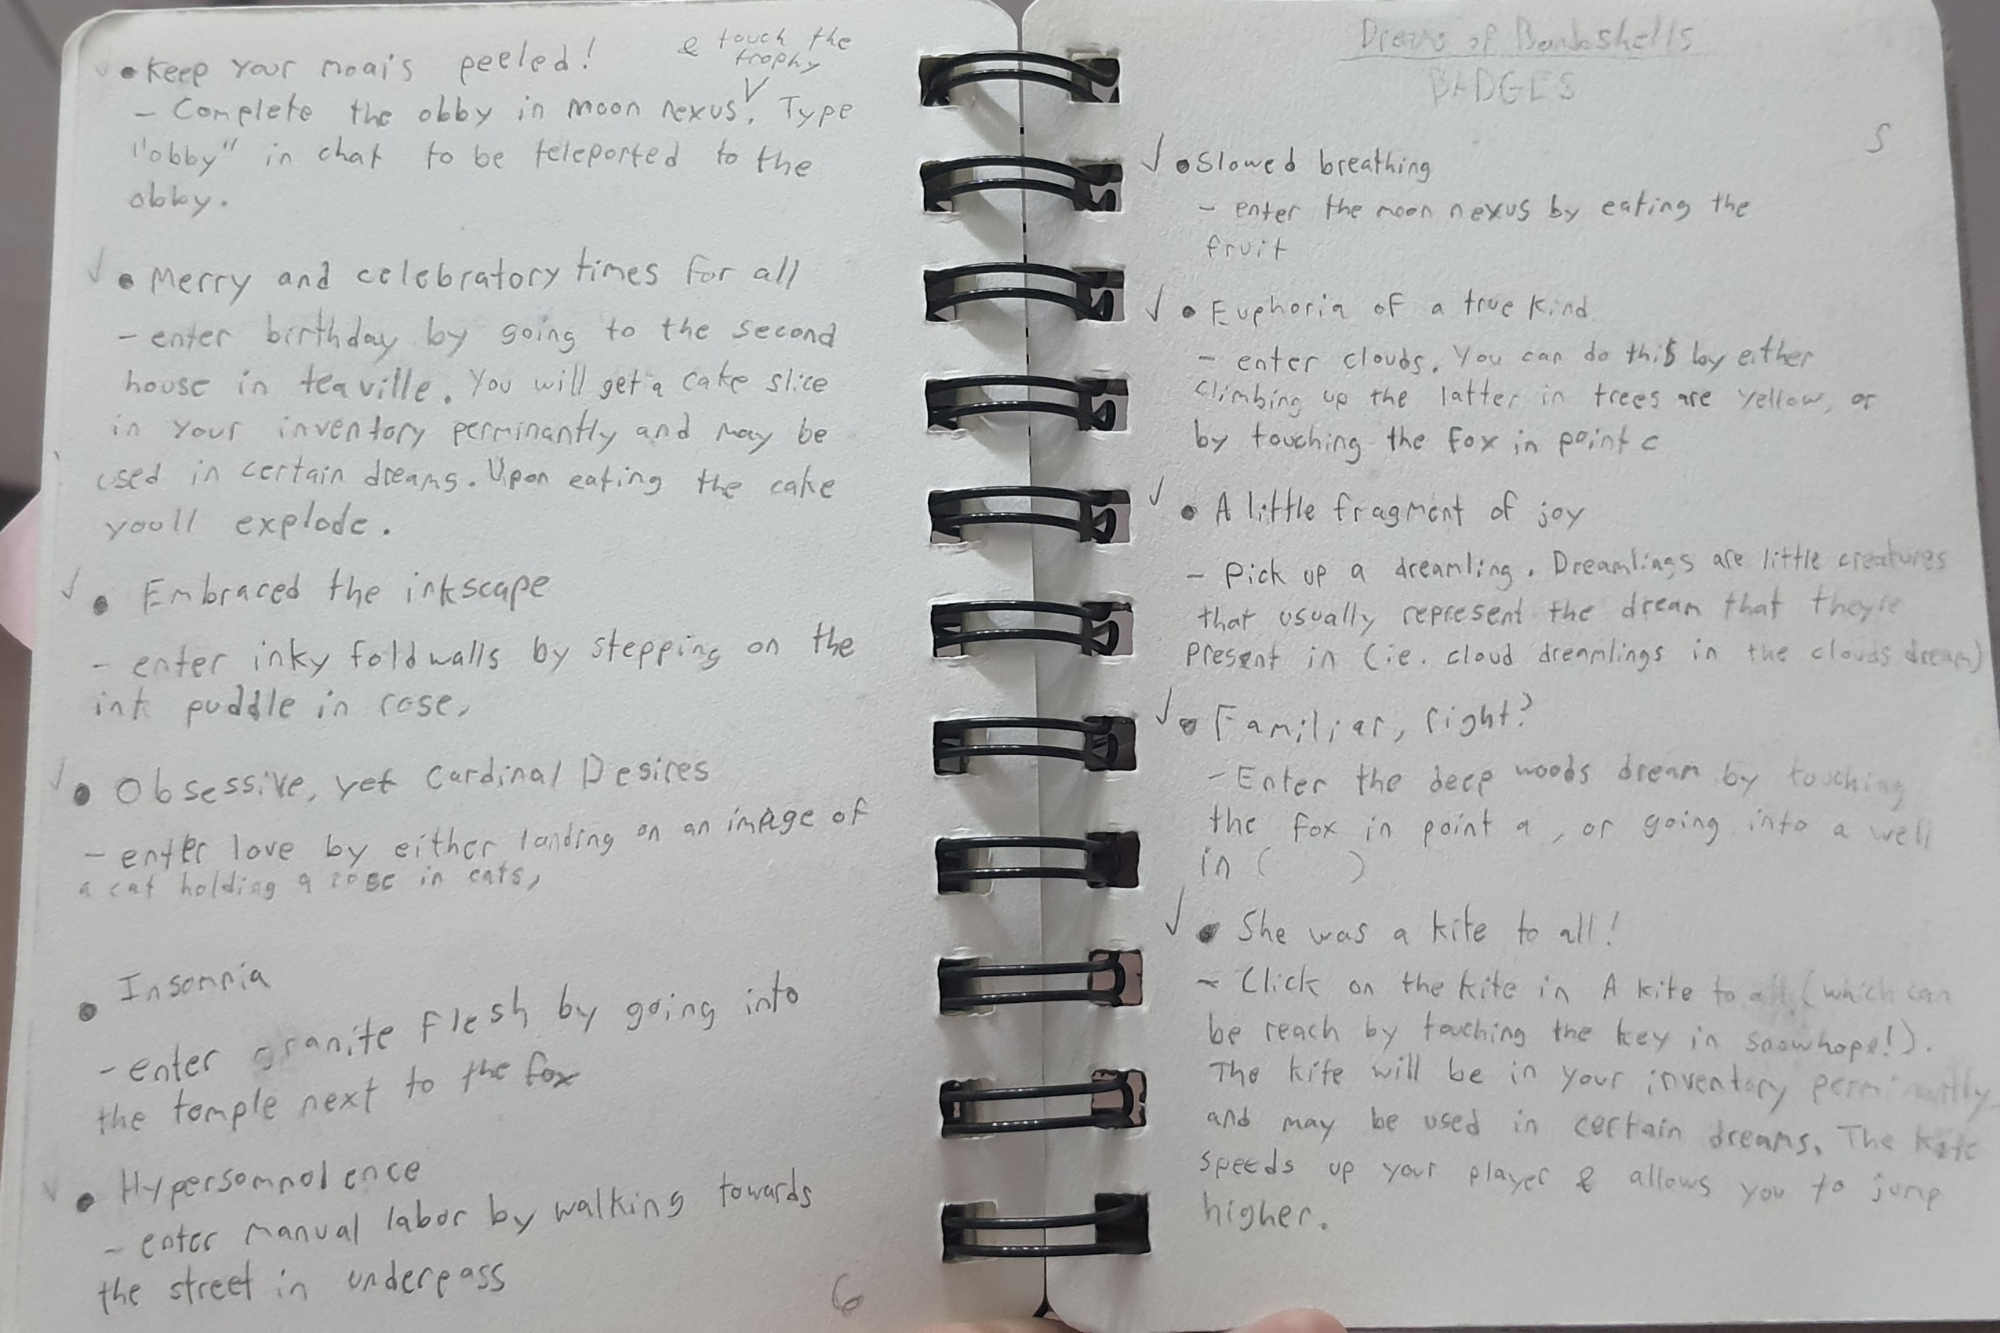 keep your moai's peeled!
& touch the
trophy
- Complete the obby in moon nexus. Type
"obby" in chat to be teleported to the
obby.
Merry and celebratory times for all
- enter birthday by going to the second
house in teaville. You will get a cake slice
in your inventory perminantly and may be
used in certain dreams. Upon eating the cake
youll explode.
Embraced the inkscape
- enter inky fold walls by stepping on the
ink puddle in rose,
Obsessive, yet Cardinal Desires
- enter love by either landing on an image of
a cat holding a rose in cats,
Insomnia
- enter granite flesh by going into
the temple next to the fox
Hypersomnolence
- enter manual labor by walking towards
the street in underpass
6
Dreams of Bombshells
BADGES
5
Slowed breathing
- enter the moon nexus by eating the
fruit
Euphoria of a true kind
- enter clouds. You can do this by either
climbing up the latter in trees are yellow, or
by touching the fox in point c
A little fragment of joy
- Pick up a dreamling. Dreamlings are little creatures
that usually represent the dream that theyre
present in (ie. cloud dreamlings in the clouds dream)
Familiar, right?
- Enter the deep woods dream by touching
the fox in point a, or going into a well
in ( )
She was a kite to all!
- Click on the kite in A kite to all (which can
be reach by touching the key in snowhope!).
The kite will be in your inventory perminantly
and may be used in certain dreams. The kite
speeds up your player & allows you to jump
higher.